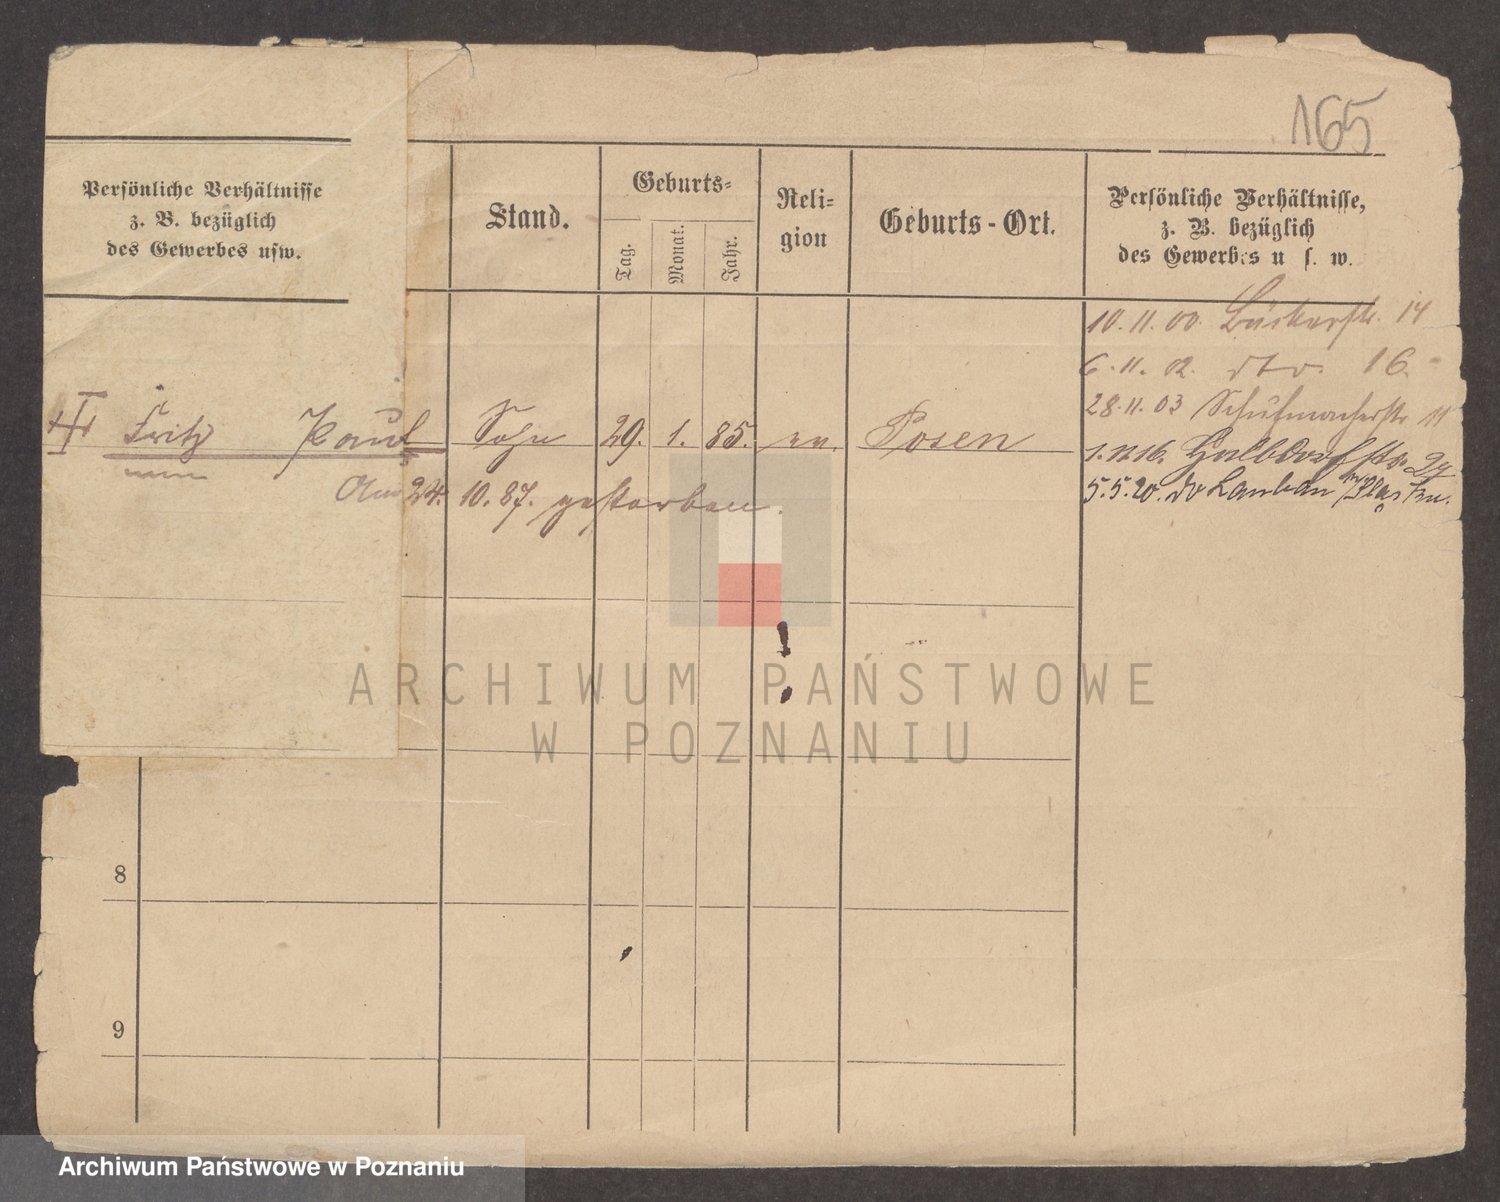 165
Persönliche Verhältnisse
z. B. bezüglich
des Gewerbes usw.
Stand.
Geburts-
Tag.
Monat.
Jahr.
Reli-
gion
Geburts-Ort.
Persönliche Verhältnisse,
z. B. bezüglich
des Gewerbes u s. w.
10.11.00 Bäckerstr. 14
6.11.02. dto. 16.
28.11.03 Schuhmacherstr 11
Fritz Paul Sohn 29. 1. 85. ev. Posen
1.12.16. Halbdorfstr 29
5.5.20. do Lauban
Am 24. 10. 87. gestorben.
8
9
ARCHIWUM PAŃSTWOWE
W POZNANIU
Archiwum Państwowe w Poznaniu